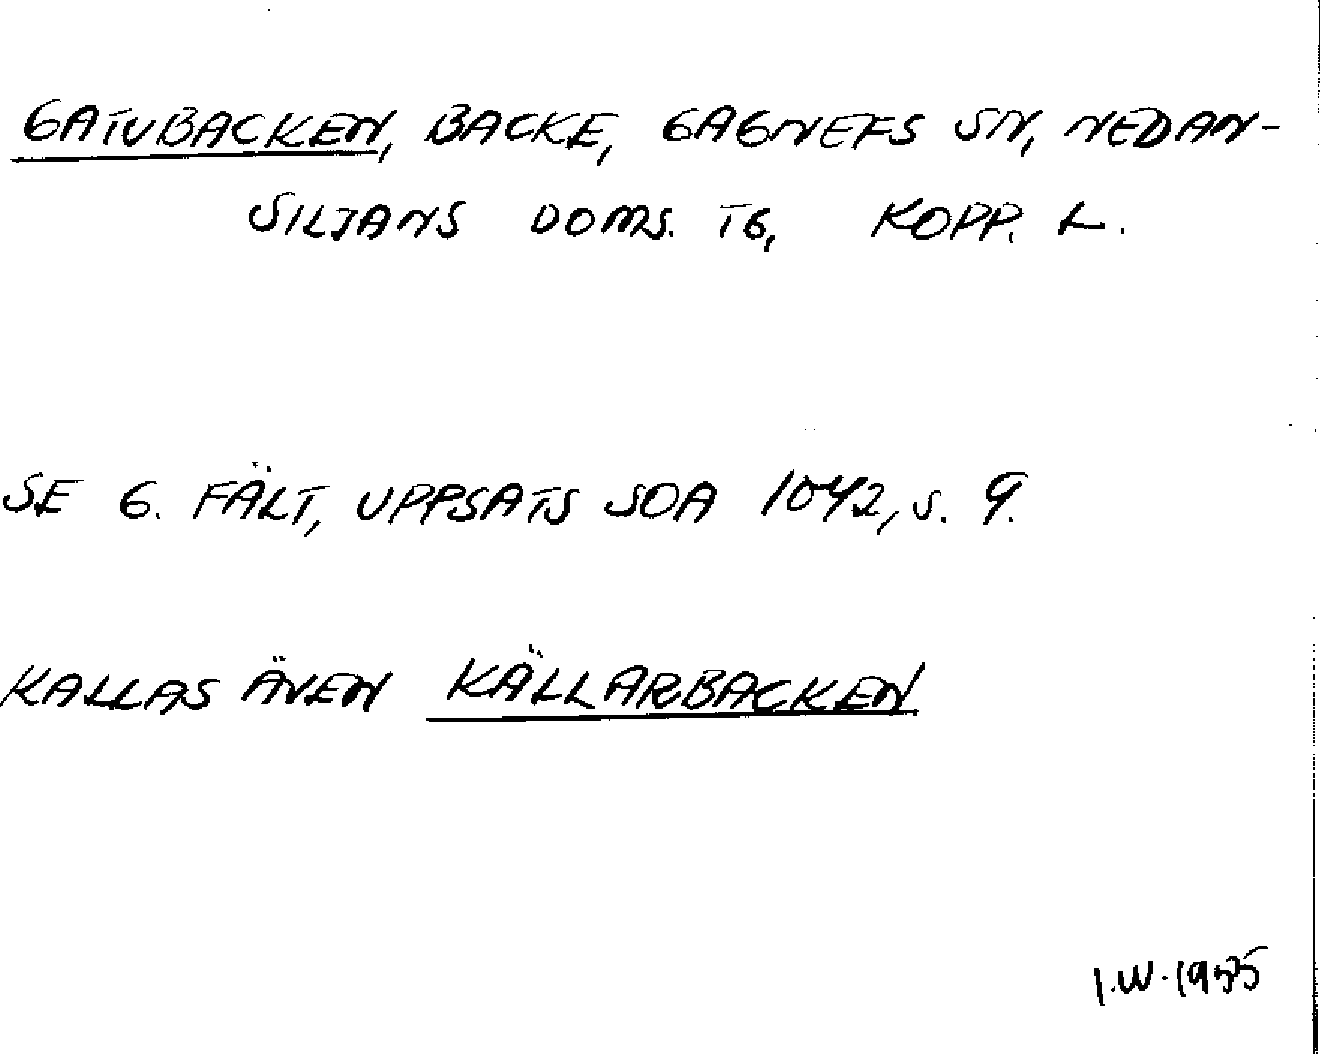 GATUBACKEN, BACKE, GAGNEFS SN, NEDAN-
SILJANS DOMS. TG, KOPP. L.
SE G. FÄLT, UPPSATS SOA 1042, S. 9.
KALLAS ÄVEN KÄLLARBACKEN
I.W. 1955